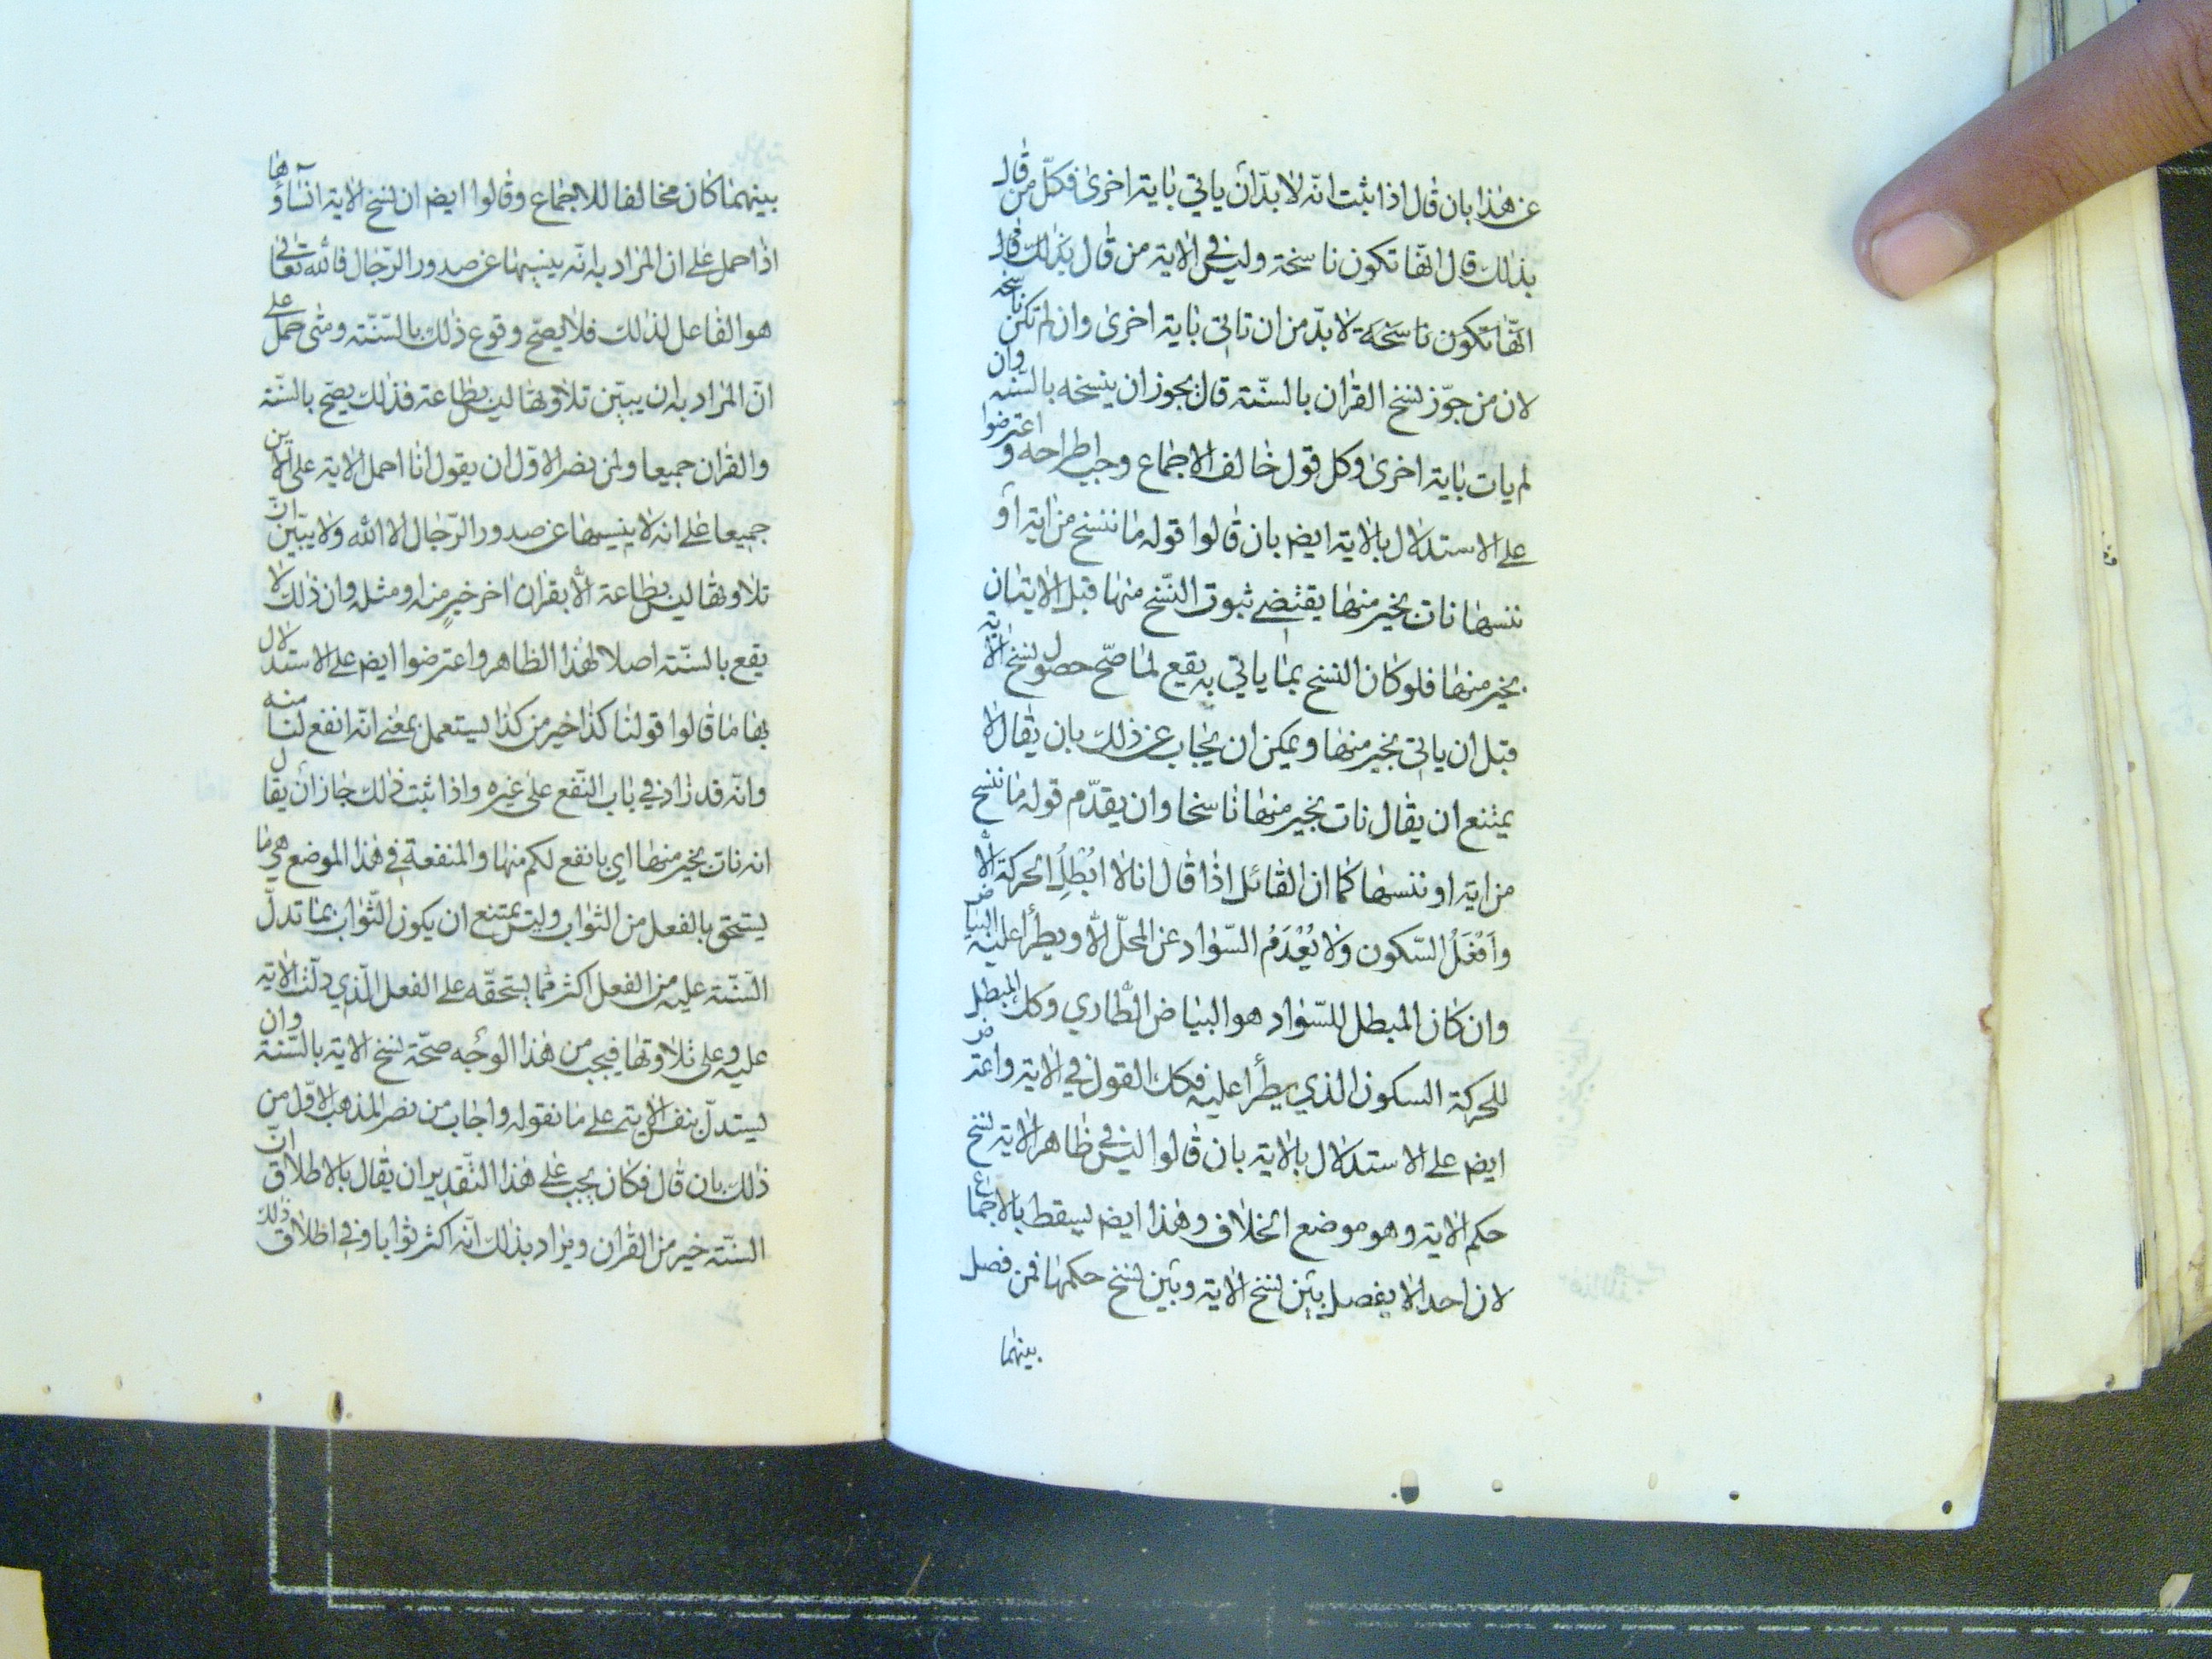 عن هذا بان قال اذا ثبت انه لا بدّ ان ياتي باية اخرى فكلّ من قال
بذلك قال انّها تكون ناسخة وليس في الاية من قال بذلك قال
انّها تكون ناسَخَة لا بدّ من ان تاتي باية اخرى وان لم تكن ناسخه
لان من جوّز نسخ القران بالسنّة قال يجوز ان ينسخه بالسنّة وان
لم يات باية اخرى وكل قول خالف الاجماع وجب اطراحه و اعترضوا
على الاستدلال بالاية ايضم بان قالوا قوله ما ننسخ من اية أو
ننسها نات بخير منها يقتضي ثبوت النّسخ منها قبل الايتان
بخير منها فلو كان النسخ بما ياتي به يقع لما صحّ حصول نسخ الاية
قبل ان ياتي بخير منها ويمكن ان يجاب عن ذلك بان يقال لا
يمتنع ان يقال نات بخير منها ناسخا وان يقدّم قوله ما ننسخ
من اية او ننسها كما ان القائل اذا قال انا لا ابُطِلُ الحركة الّا
وأفْعَلُ السّكون ولا يُعْدَمُ السّواد عن المحلّ الّا ويطرأ عليه البياض
وان كان المبطل للسّواد هو البياض الطّاري وكك المبطل
للحركة السكون الذي يطرأ عليه فكك القول في الاية واعترض
ايضم على الاستدلال بالاية بان قالوا ليس في ظاهر الاية نسخ
حكم الاية وهو موضع الخلاف وهذا ايضم يسقط بالاجماع
لان احدا لا يفصل بين نسخ الاية وبين نسخ حكمها فمن فصل
بينهما
بينهما كان مخالفا للاجماع وقالوا ايضم ان نسخ الاية انساؤها
اذا حمل على ان المراد به انّه ينسيها عن صدور الرّجال فالله تعالى
هو الفاعل لذلك فلا يصحّ وقوع ذلك بالسّنّة ومتى حمل على
انّ المراد به ان يبيّن تلاوتها ليس بطاعة فذلك يصحّ بالسنّة
والقران جميعا ولمن نصر الاوّل ان يقول انا احمل الاية على الامرين
جميعا على انه لا ينسيها عن صدور الرّجال الا الله ولا يبيّن انّ
تلاوتها ليس بطاعة الّا بقران اخر خيرٍ منه او مثله وان ذلك لا
يقع بالسنّة اصلا لهذا الظاهر واعترضوا ايضم على الاستدلال
بها ما قالوا قولنا كذا خير من كذا يستعمل بمعنى انّه انفع لنا منه
وانّه قد زاد في باب النّفع على غيره واذا ثبت ذلك جاز ان يقال
انه نات بخير منها اي بانفع لكم منها والمنفعة في هذا الموضع هي ما
يستحق بالفعل من الثواب وليس يمتنع ان يكون الثّواب بما تدلّ
السّنّة عليه من الفعل اكثر ممّا يستحقّه على الفعل الّذي دلّت الاية
عليه وعلى تلاوتها فيجب من هذا الوجه صحّة نسخ الاية بالسّنّة وان
يستدلّ بنفس الاية على ما نقوله واجاب من نصر المذهب الاوّل من
ذلك بان قال فكان يجب على هذا التّقدير ان يقال بالاطلاق انّ
السنّة خير من القران ويراد بذلك انّه اكثر ثوابا وفي اطلاق ذلك